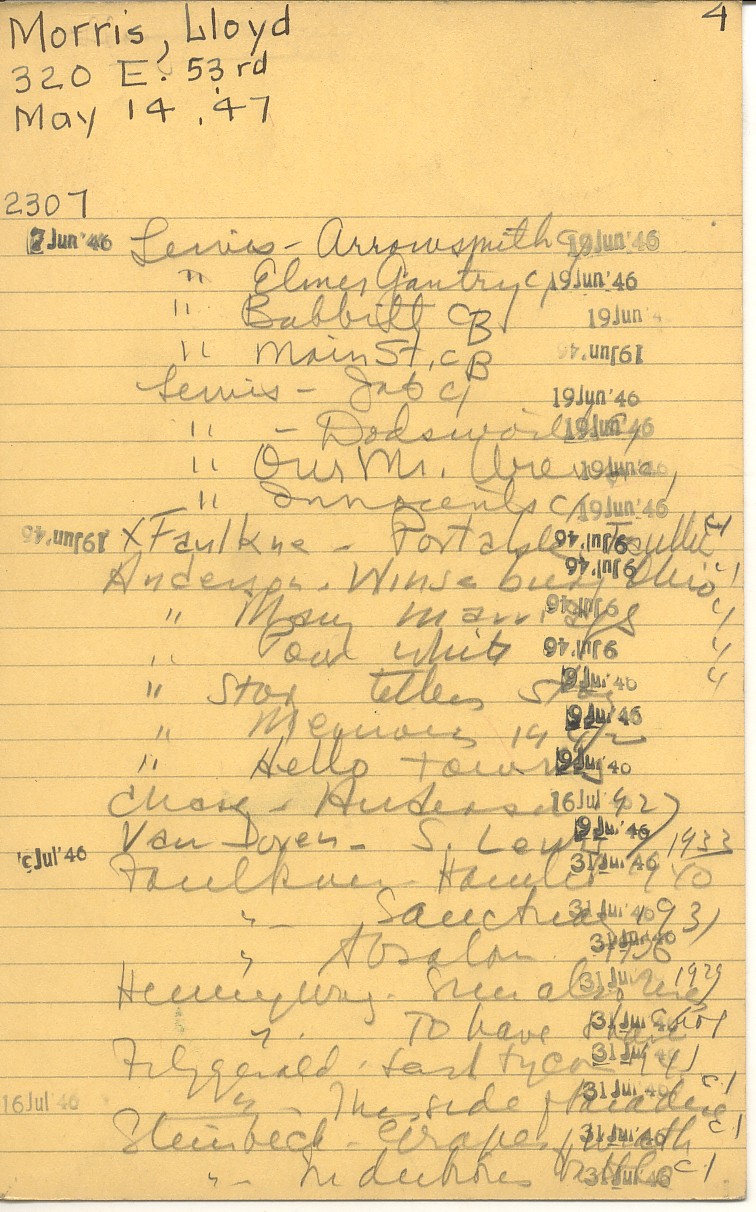 4
Morris, Lloyd
320 E. 53rd
May 14, 47
2307
7 Jun '46 Lewis - Arrowsmith c/ 19 Jun '46
" Elmer Gantry c/ 19 Jun '46
" Babbitt c B 19 Jun '4
" Main St. c B 19 Jun '4
Lewis - Job c/ 19 Jun '46
" - Dodsworth c/ 19 Jun '46
" Our Mr. Wrenn 19 Jun '46
" Innocents c/ 19 Jun '46
19 Jun '46 X Faulkne - Portable Faulkn c1 9 Jul '46
Anderson - Winesburg Ohio c1 9 Jul '46
" Many marriages 9 Jul '46
" Poor white 9 Jul '46
" Story tellers story 9 Jul '46
" Memoirs 1942 9 Jul '46
" Hello towns 9 Jul '46
Chase - Anderson 16 Jul
Van Doren - S. Lewis 1933 9 Jul '46
9 Jul '46 Faulkner - Hamlet 1940 31 Jul '46
" - Sanctuary 1931 31 Jul '46
" Absalom 1936 31 Jul '46
Hemingway - Sun also rises 1929 31 Jul '46
" - To have & have not 31 Jul '46
Fitzgerald - Last tycoon 1941 31 Jul '46
16 Jul '46 " - This side of paradise c1 31 Jul '46
Steinbeck - Grapes of wrath c1 31 Jul '46
" - In dubious battle c1 31 Jul '46